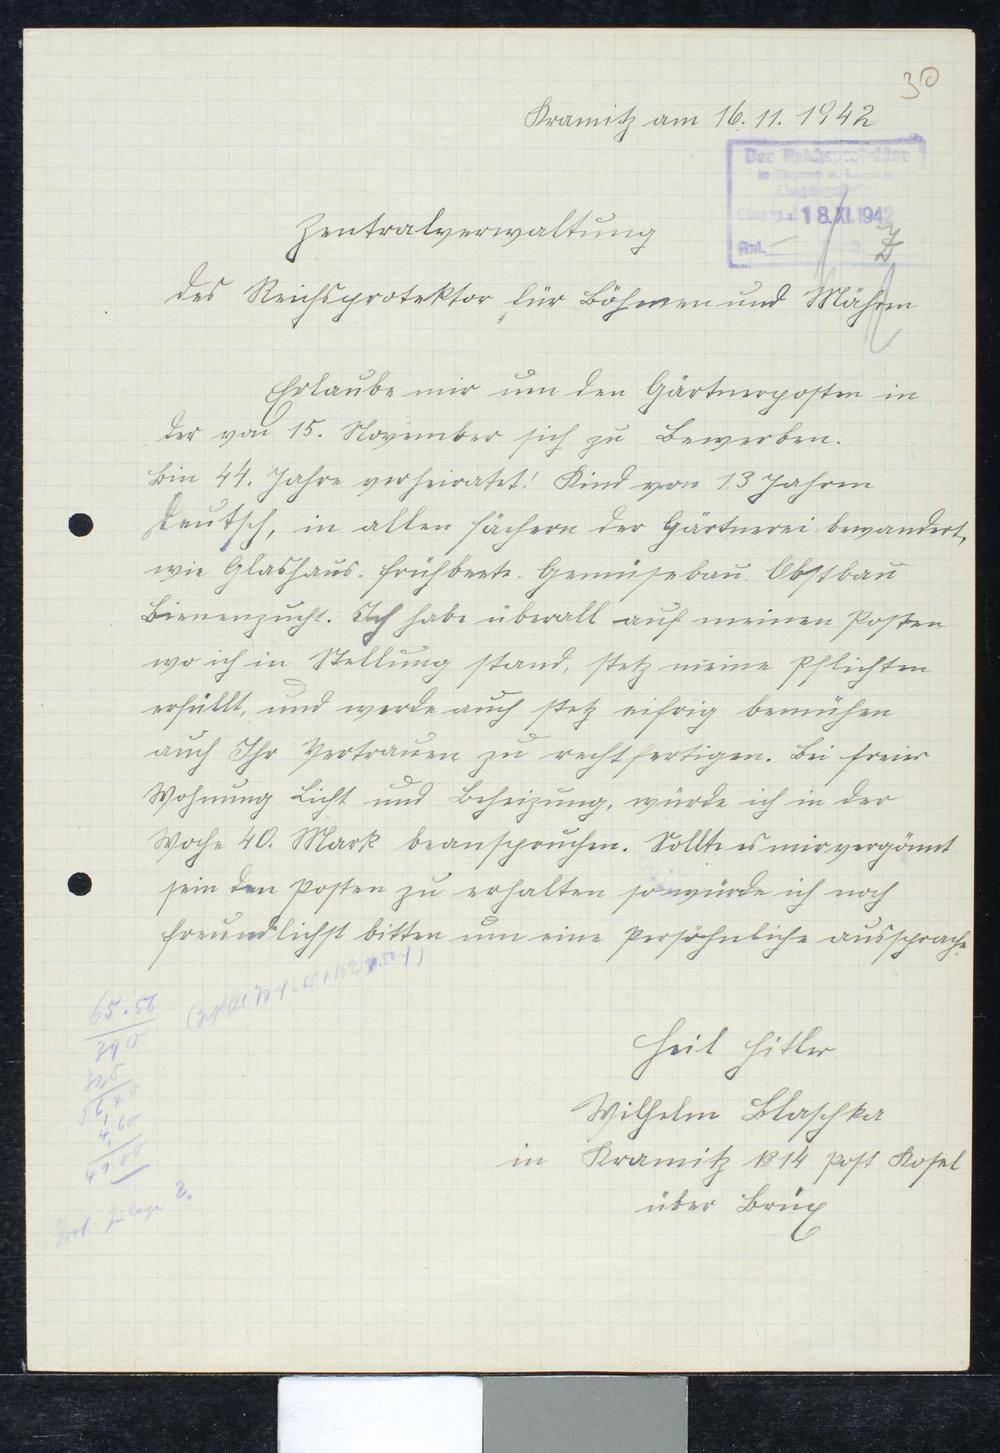 30
Kramitz am 16. 11. 1942
Der Reichsprotektor
in Böhmen u. Mähren
18. XI. 1942
Anl.
Zentralverwaltung
des Reichsprotektor für Böhmen und Mähren
Erlaube mir um den Gärtnerposten in
der von 15. November sich zu Bewerben.
Bin 44. Jahre verheiratet! Kind von 13 Jahren
Deutsch, in allen fächern der Gärtnerei bewandert,
wie Glashaus. frühbeete. Gemüsebau. Obstbau
Bienenzucht. Ich habe überall auf meinen Posten
wo ich in Stellung stand, stetz meine Pflichten
erfüllt, und werde auch stetz eifrig bemühen
auch Ihr Vertrauen zu rechtfertigen. Bei freier
Wohnung Licht und Beheizung, würde ich in der
Woche 40. Mark beanspruchen. Sollte es mir vergönnt
sein den Posten zu erhalten so würde ich noch
freundlichst bitten um eine Persöhnliche aussprache.
65.56
390
325
4,60
Heil Hitler
Wilhelm Blaschka
in Kramitz № 14 Post Kosel
über Brüx
2.